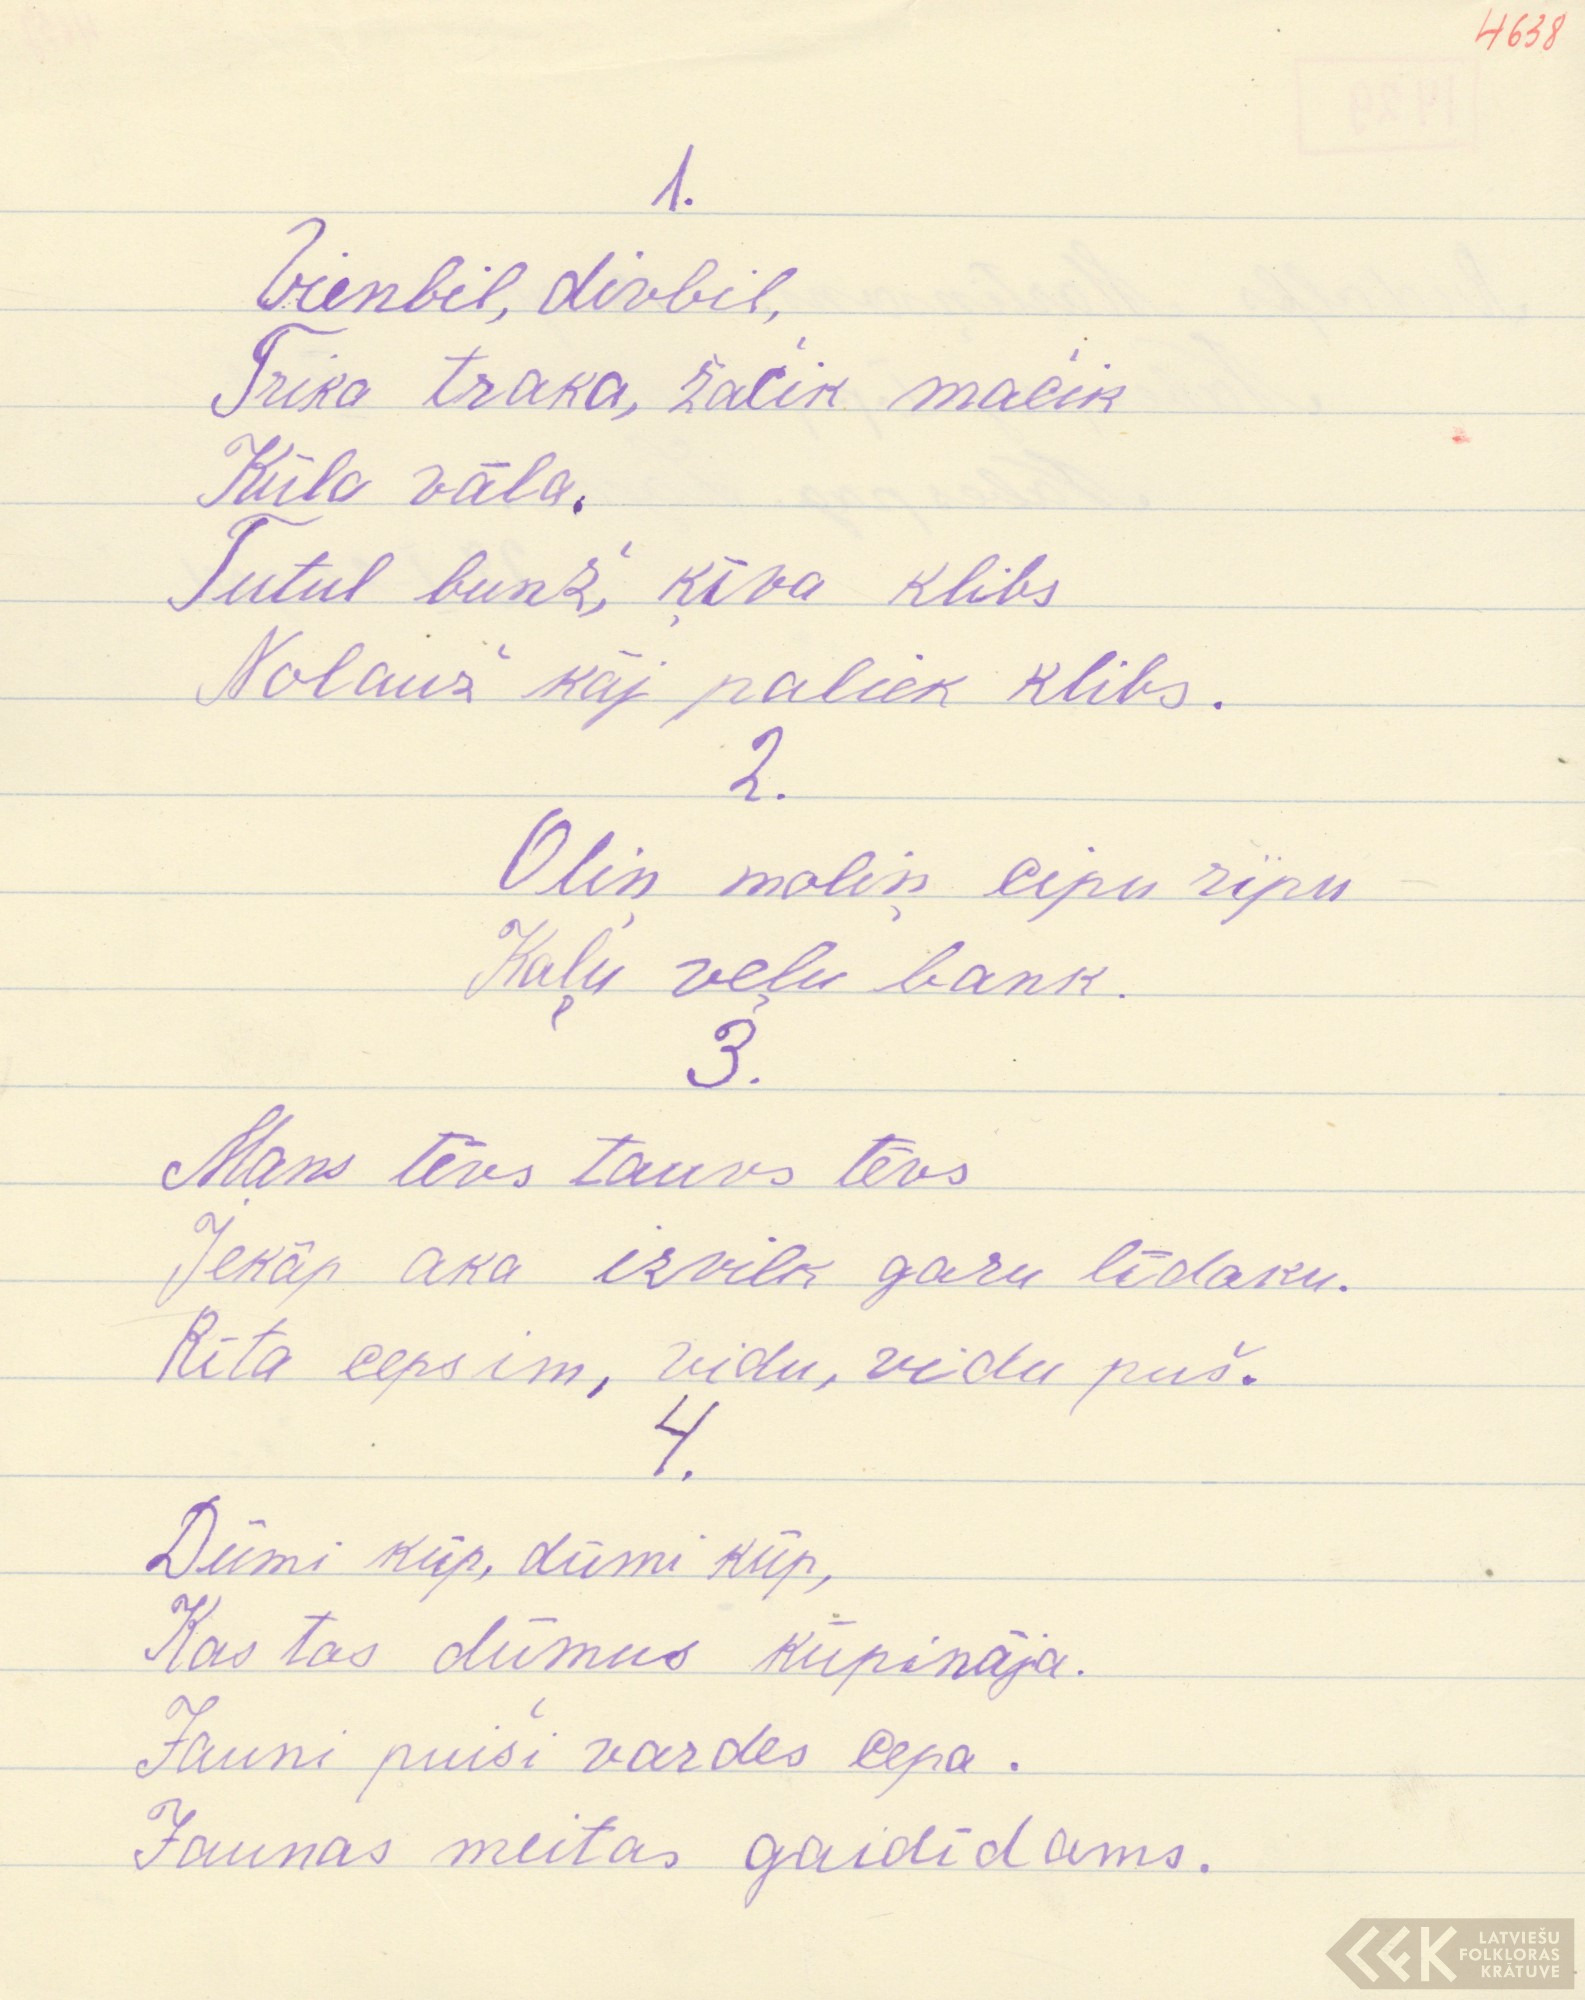 4638
1.
Vienbil, divbil,
Trika traka, žačik mačik
Kūla vāla.
Tutul bunž, ķīva klibs
Nolauž kāj paliek klibs.
2.
Oliņ moliņ cipu ripu
Kaļu veļu bank.
3.
Mans tēvs tauvs tēvs
Jekāp aka izvilk garu līdaku.
Rīta cepsim, vidu, vidu puš.
4.
Dūmi kūp, dūmi kūp,
Kas tos dūmus kūpināja.
Jauni puiši vardes cepa.
Jaunas meitas gaidīdams.
LATVIEŠU
FOLKLORAS
KRĀTUVE